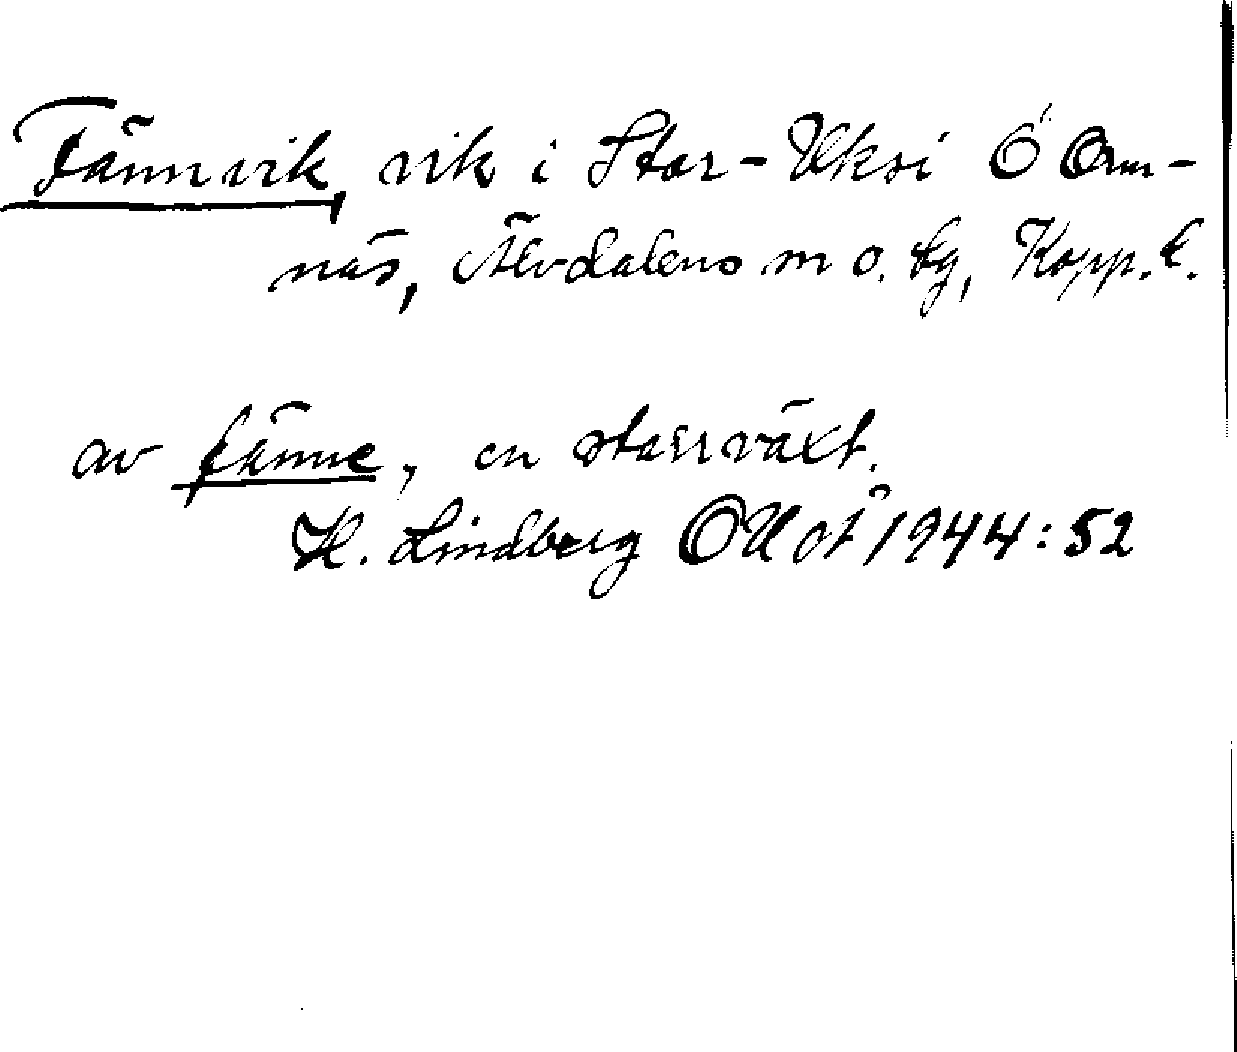 Fännvik, vik i Stor-Uksi Ö Orm-
näs, Älvdalens m o. tg, Kopp. l.
av fänne, en starrväxt.
H. Lindberg OUoÅ 1944:52